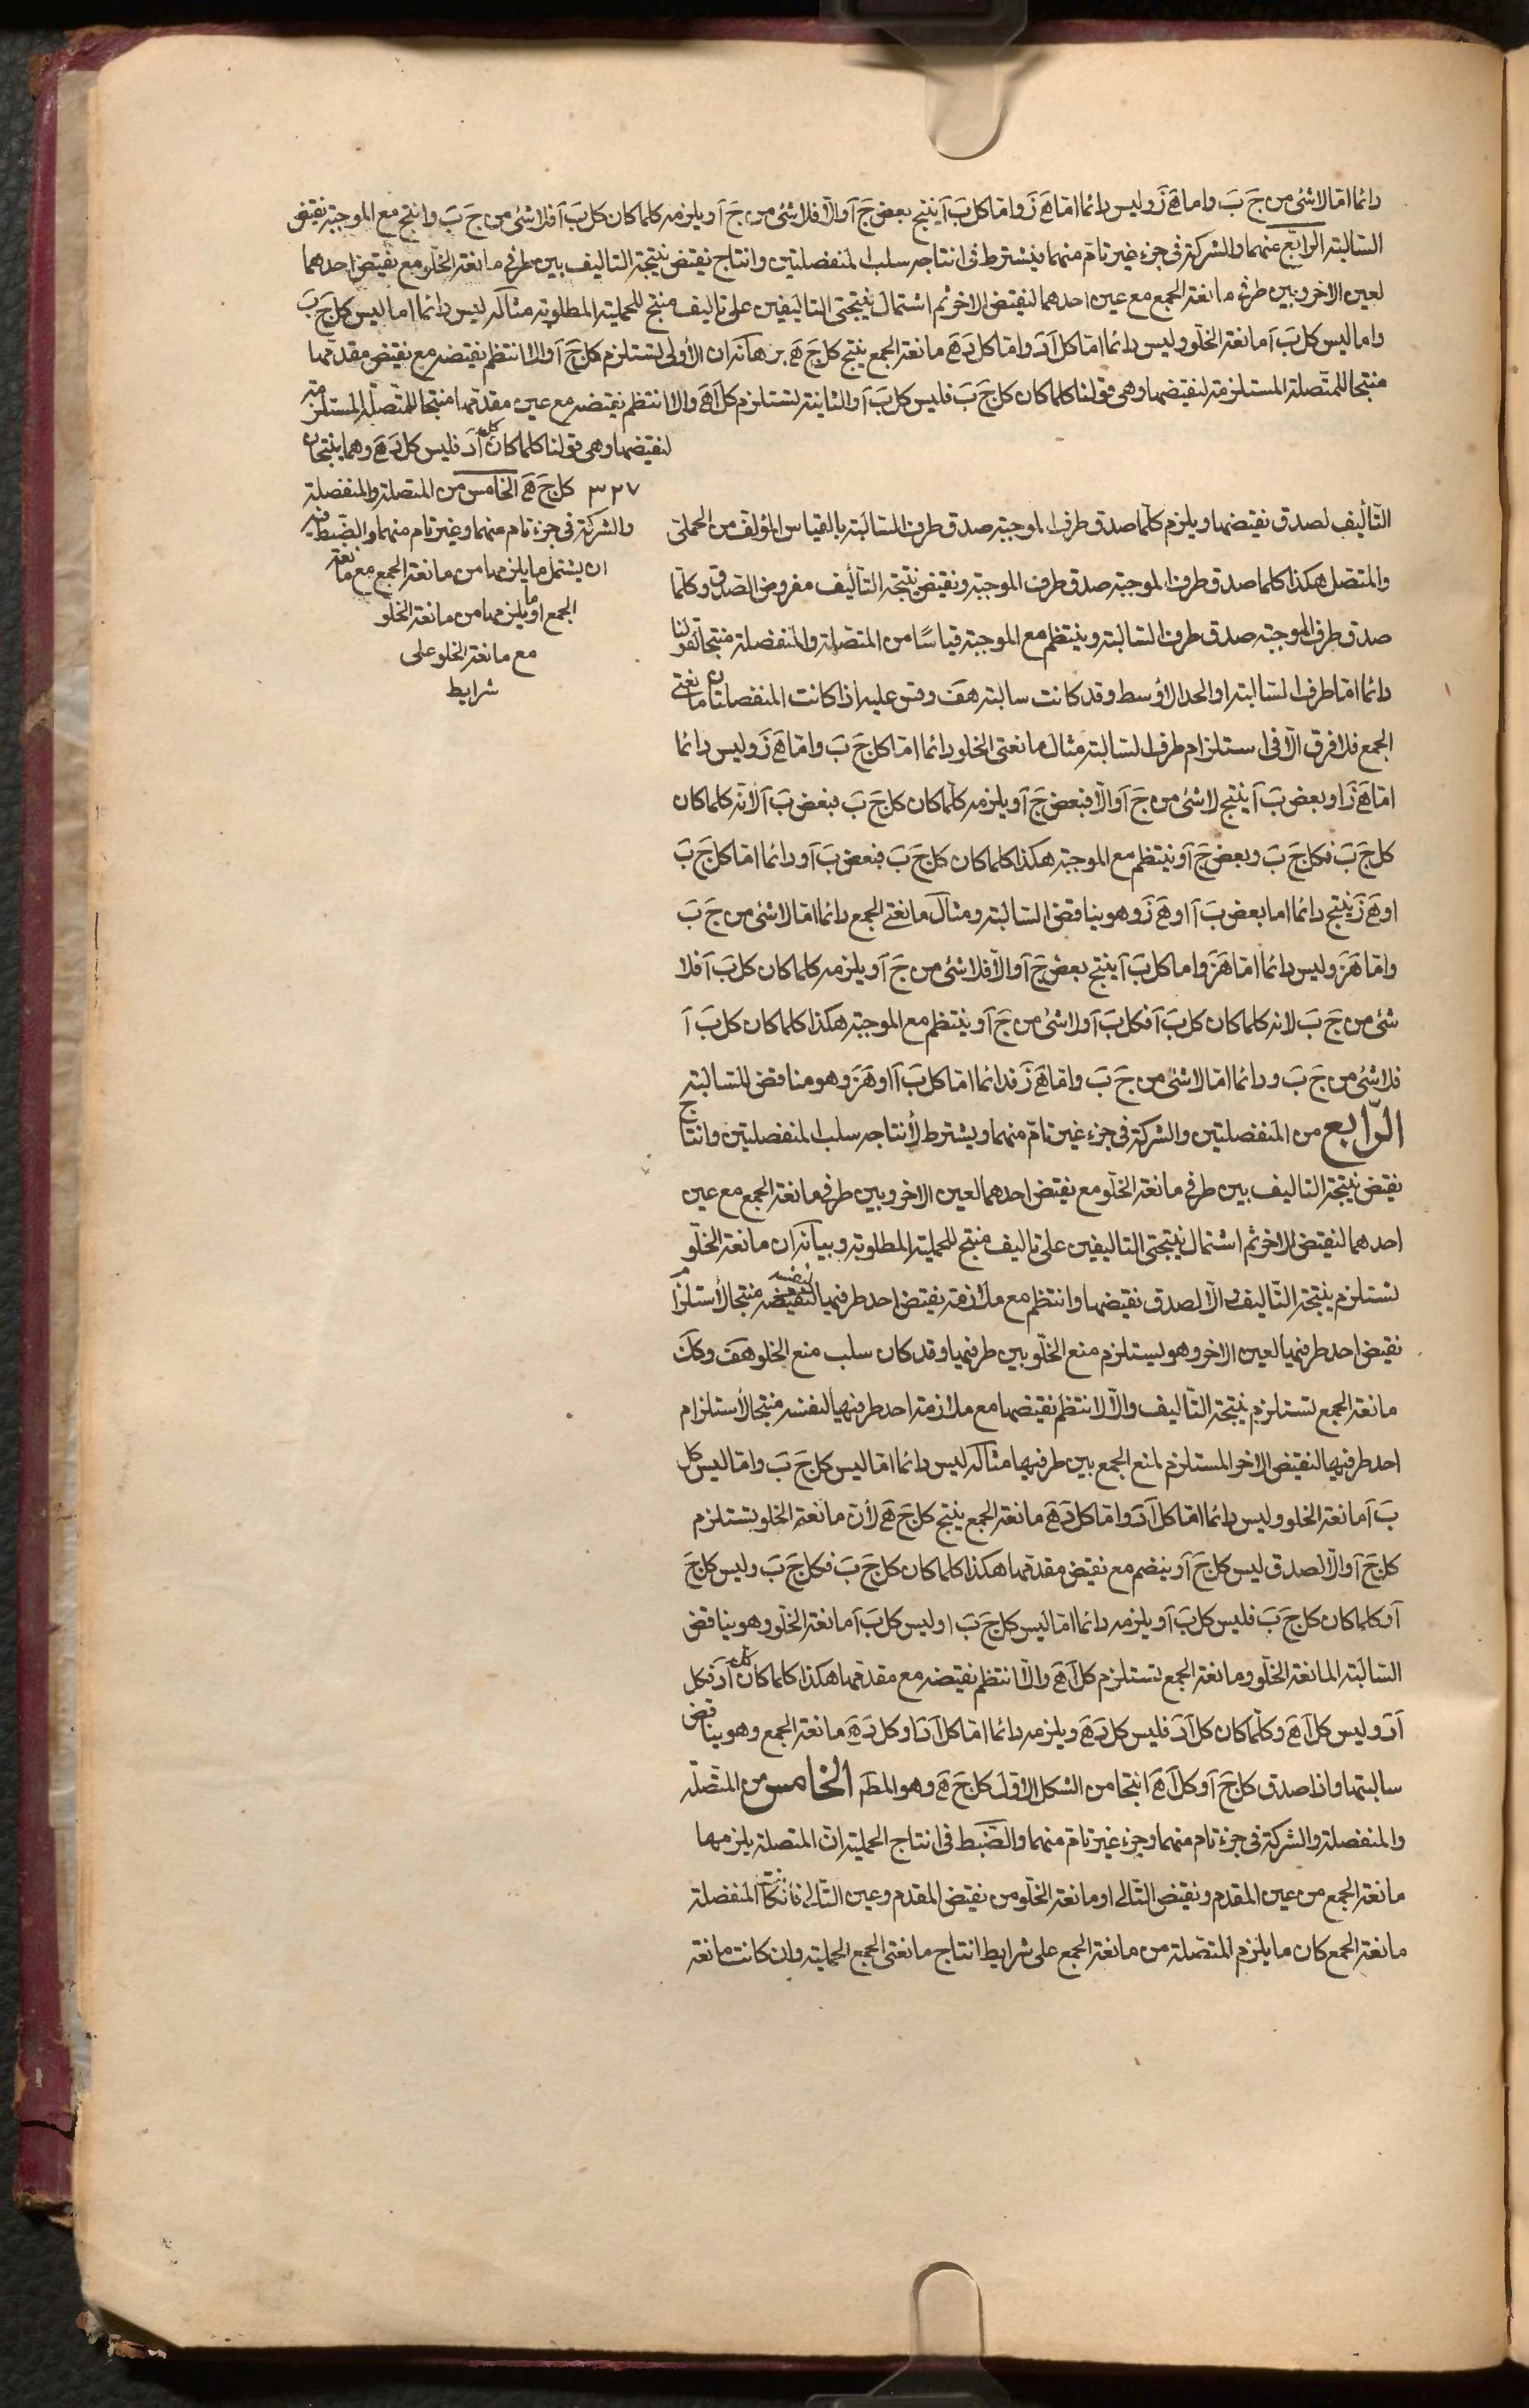 دائما اما لا شئ من جَ بَ واما هَ زَ وليس دائما اما هَ زَ واما كل بَ آ ينتج بعض جَ آ والا فلا شئ من جَ آ ويلزمه كلما كان كل بَ آ فلا شئ من جَ بَ وانتج مع الموجبة نقيض
السالبة الرابع منهما والشركة في جزء غير تام منهما ويشترط في انتاجه سلب المنفصلتين وانتاج نقيض نتيجة التاليف بين طرفي مانعة الخلو مع نقيض احدهما
لعين الاخر وبين طرفي مانعة الجمع مع عين احدهما لنقيض الاخر ثم اشتمال نتيجتي التاليفين على تاليف منتج للحملية المطلوبة مثاله ليس دائما اما ليس كل جَ بَ
واما ليس كل بَ آ مانعة الخلو وليس دائما اما كل آ دَ واما كل دَ هَ مانعة الجمع ينتج كل جَ هَ برهانه ان الأولى تستلزم كل جَ آ والا انتظم نقيضه مع نقيض مقدمها
منتجا للمتصلة المستلزمة لنقيضها وهي قولنا كلما كان كل جَ بَ فليس كل بَ آ والثانية تستلزم كل آ هَ والا انتظم نقيضه مع عين مقدمها منتجا للمتصلة المستلزمة
لنقيضها وهي قولنا كلما كان كل آ دَ فليس كل دَ هَ وهما ينتجان
٣٢٧ كل جَ هَ الخامس من المتصلة والمنفصلة
والشركة في جزء تام منهما وغير تام منهما والضبط فيه
ان يشتمل ما يلزمها من مانعة الجمع مع مانعة
الجمع او ما يلزمها من مانعة الخلو
مع مانعة الخلو على
شرايط
التأليف لصدق نقيضها ويلزم كلما صدق طرف الموجبة صدق طرف السالبة بالقياس المؤلف من الحملي
والمتصل هكذا كلما صدق طرف الموجبة صدق طرف الموجبة ونقيض نتيجة التأليف مفروض الصدق وكلما
صدق طرف الموجبة صدق طرف السالبة وينتظم مع الموجبة قياسًا من المتصلة والمنفصلة منتجا لقولنا
دائما اما طرف السالبة او الحد الأوسط وقد كانت سالبة هف وقس عليه اذا كانت المنفصلتان مانعتي
الجمع فلا فرق الا في استلزام طرف السالبة مثال مانعتي الخلو دائما اما كل جَ بَ واما هَ زَ وليس دائما
اما هَ زَ او بعض بَ آ ينتج لا شئ من جَ آ والا فبعض جَ آ ويلزمه كلما كان كل جَ بَ فبعض بَ آ لأنه كلما كان
كل جَ بَ فكل جَ بَ وبعض جَ آ وينتظم مع الموجبة هكذا كلما كان كل جَ بَ فبعض بَ آ ودائما اما كل جَ بَ
او هَ زَ ينتج دائما اما بعض بَ آ او هَ زَ وهو يناقض السالبة ومثال مانعتي الجمع دائما اما لا شئ من جَ بَ
واما هَ زَ وليس دائما اما هَ زَ واما كل بَ آ ينتج بعض جَ آ والا فلا شئ من جَ آ ويلزمه كلما كان كل بَ آ فلا
شئ من جَ بَ لانه كلما كان كل بَ آ فكل بَ آ ولا شئ من جَ آ وينتظم مع الموجبة هكذا كلما كان كل بَ آ
فلا شئ من جَ بَ ودائما اما لا شئ من جَ بَ واما هَ زَ فدائما اما كل بَ آ او هَ زَ وهو مناقض للسالبة
الرّابع من المنفصلتين والشركة في جزء غير تام منهما ويشترط لأنتاجه سلب المنفصلتين وانتاج
نقيض نتيجة التاليف بين طرفي مانعة الخلو مع نقيض احدهما لعين الاخر وبين طرفي مانعة الجمع مع عين
احدهما لنقيض الاخر ثم اشتمال نتيجتي التاليفين على تاليف منتج للحملية المطلوبة وبيانه ان مانعة الخلو
تستلزم نتيجة التاليف والا لصدق نقيضها وانتظم مع ملازمة نقيض احد طرفيها لنفسه منتجا لأستلزام
نقيض احد طرفيها لعين الاخر وهو يستلزم منع الخلو بين طرفيها وقد كان سلب منع الخلو هف وكك
مانعة الجمع تستلزم نتيجة التاليف والا لانتظم نقيضها مع ملازمة احد طرفيها لنفسه منتجا لأستلزام
احد طرفيها لنقيض الاخر المستلزم لمنع الجمع بين طرفيها مثاله ليس دائما اما ليس كل جَ بَ واما ليس كل
بَ آ مانعة الخلو وليس دائما اما كل آ دَ واما كل دَ هَ مانعة الجمع ينتج كل جَ هَ لأن مانعة الخلو تستلزم
كل جَ آ والا لصدق ليس كل جَ آ وينضم مع نقيض مقدمها هكذا كلما كان كل جَ بَ فكل جَ بَ وليس كل جَ
آ وكلما كان كل جَ بَ فليس كل بَ آ ويلزمه دائما اما ليس كل جَ بَ او ليس كل بَ آ مانعة الخلو وهو يناقض
السالبة المانعة الخلو ومانعة الجمع تستلزم كل آ هَ والا انتظم نقيضه مع مقدمها هكذا كلما كان كل آ دَ فكل
آ دَ وليس كل آ هَ وكلما كان كل آ دَ فليس كل دَ هَ ويلزمه دائما اما كل آ دَ او كل دَ هَ مانعة الجمع وهو يناقض
سالبتها واذا صدق كل جَ آ وكل آ هَ انتجا من الشكل الاول كل جَ هَ وهو المط الخامس من المتصلة
والمنفصلة والشركة في جزء تام منهما وجزء غير تام منهما والضبط في انتاج الحملية ان المتصلة يلزمها
مانعة الجمع من عين المقدم ونقيض التالي او مانعة الخلو من نقيض المقدم وعين التالي فان كانت المنفصلة
مانعة الجمع كان ما يلزم المتصلة من مانعة الجمع على شرايط انتاج مانعتي الجمع الحملية وان كانت مانعة